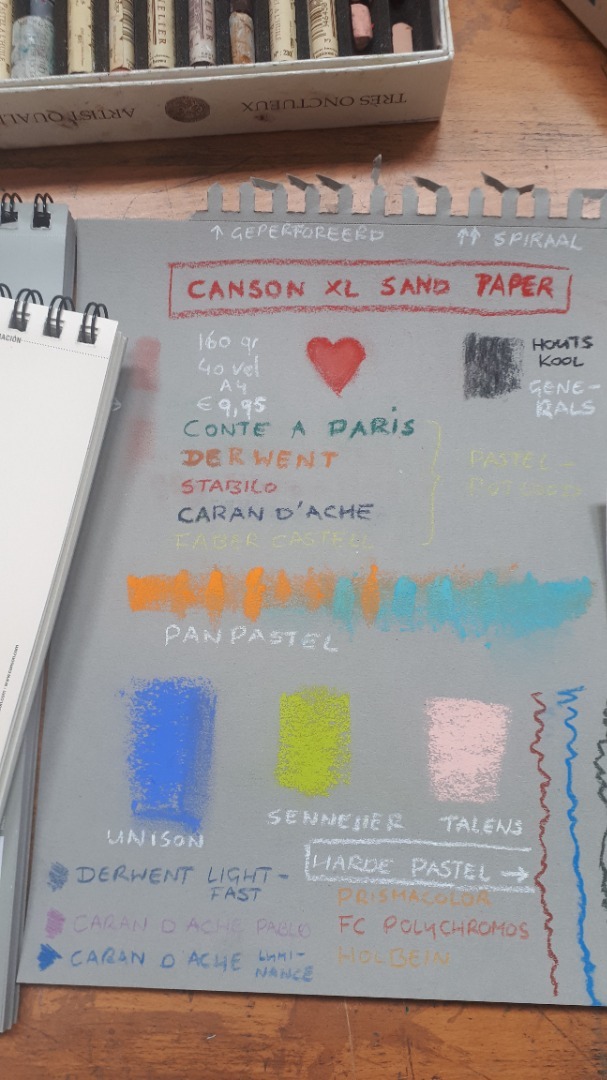 TRÈS ONCTUEUX
↑ GEPERFOREERD
↑↑ SPIRAAL
CANSON XL SAND PAPER
160 gr
40 vel
A4
€ 9,95
HOUTS
KOOL
GENE-
RALS
CONTE A PARIS
DERWENT
STABILO
CARAN D'ACHE
FABAR CASTELL
PASTEL-
POTLOODS
PANPASTEL
UNISON
SENNELIER
TALENS
HARDE PASTEL →
DERWENT LIGHT-
FAST
CARAN D'ACHE PABLO
CARAN D'ACHE LUMI-
NANCE
PRISMACOLOR
FC POLYCHROMOS
HOLBEIN